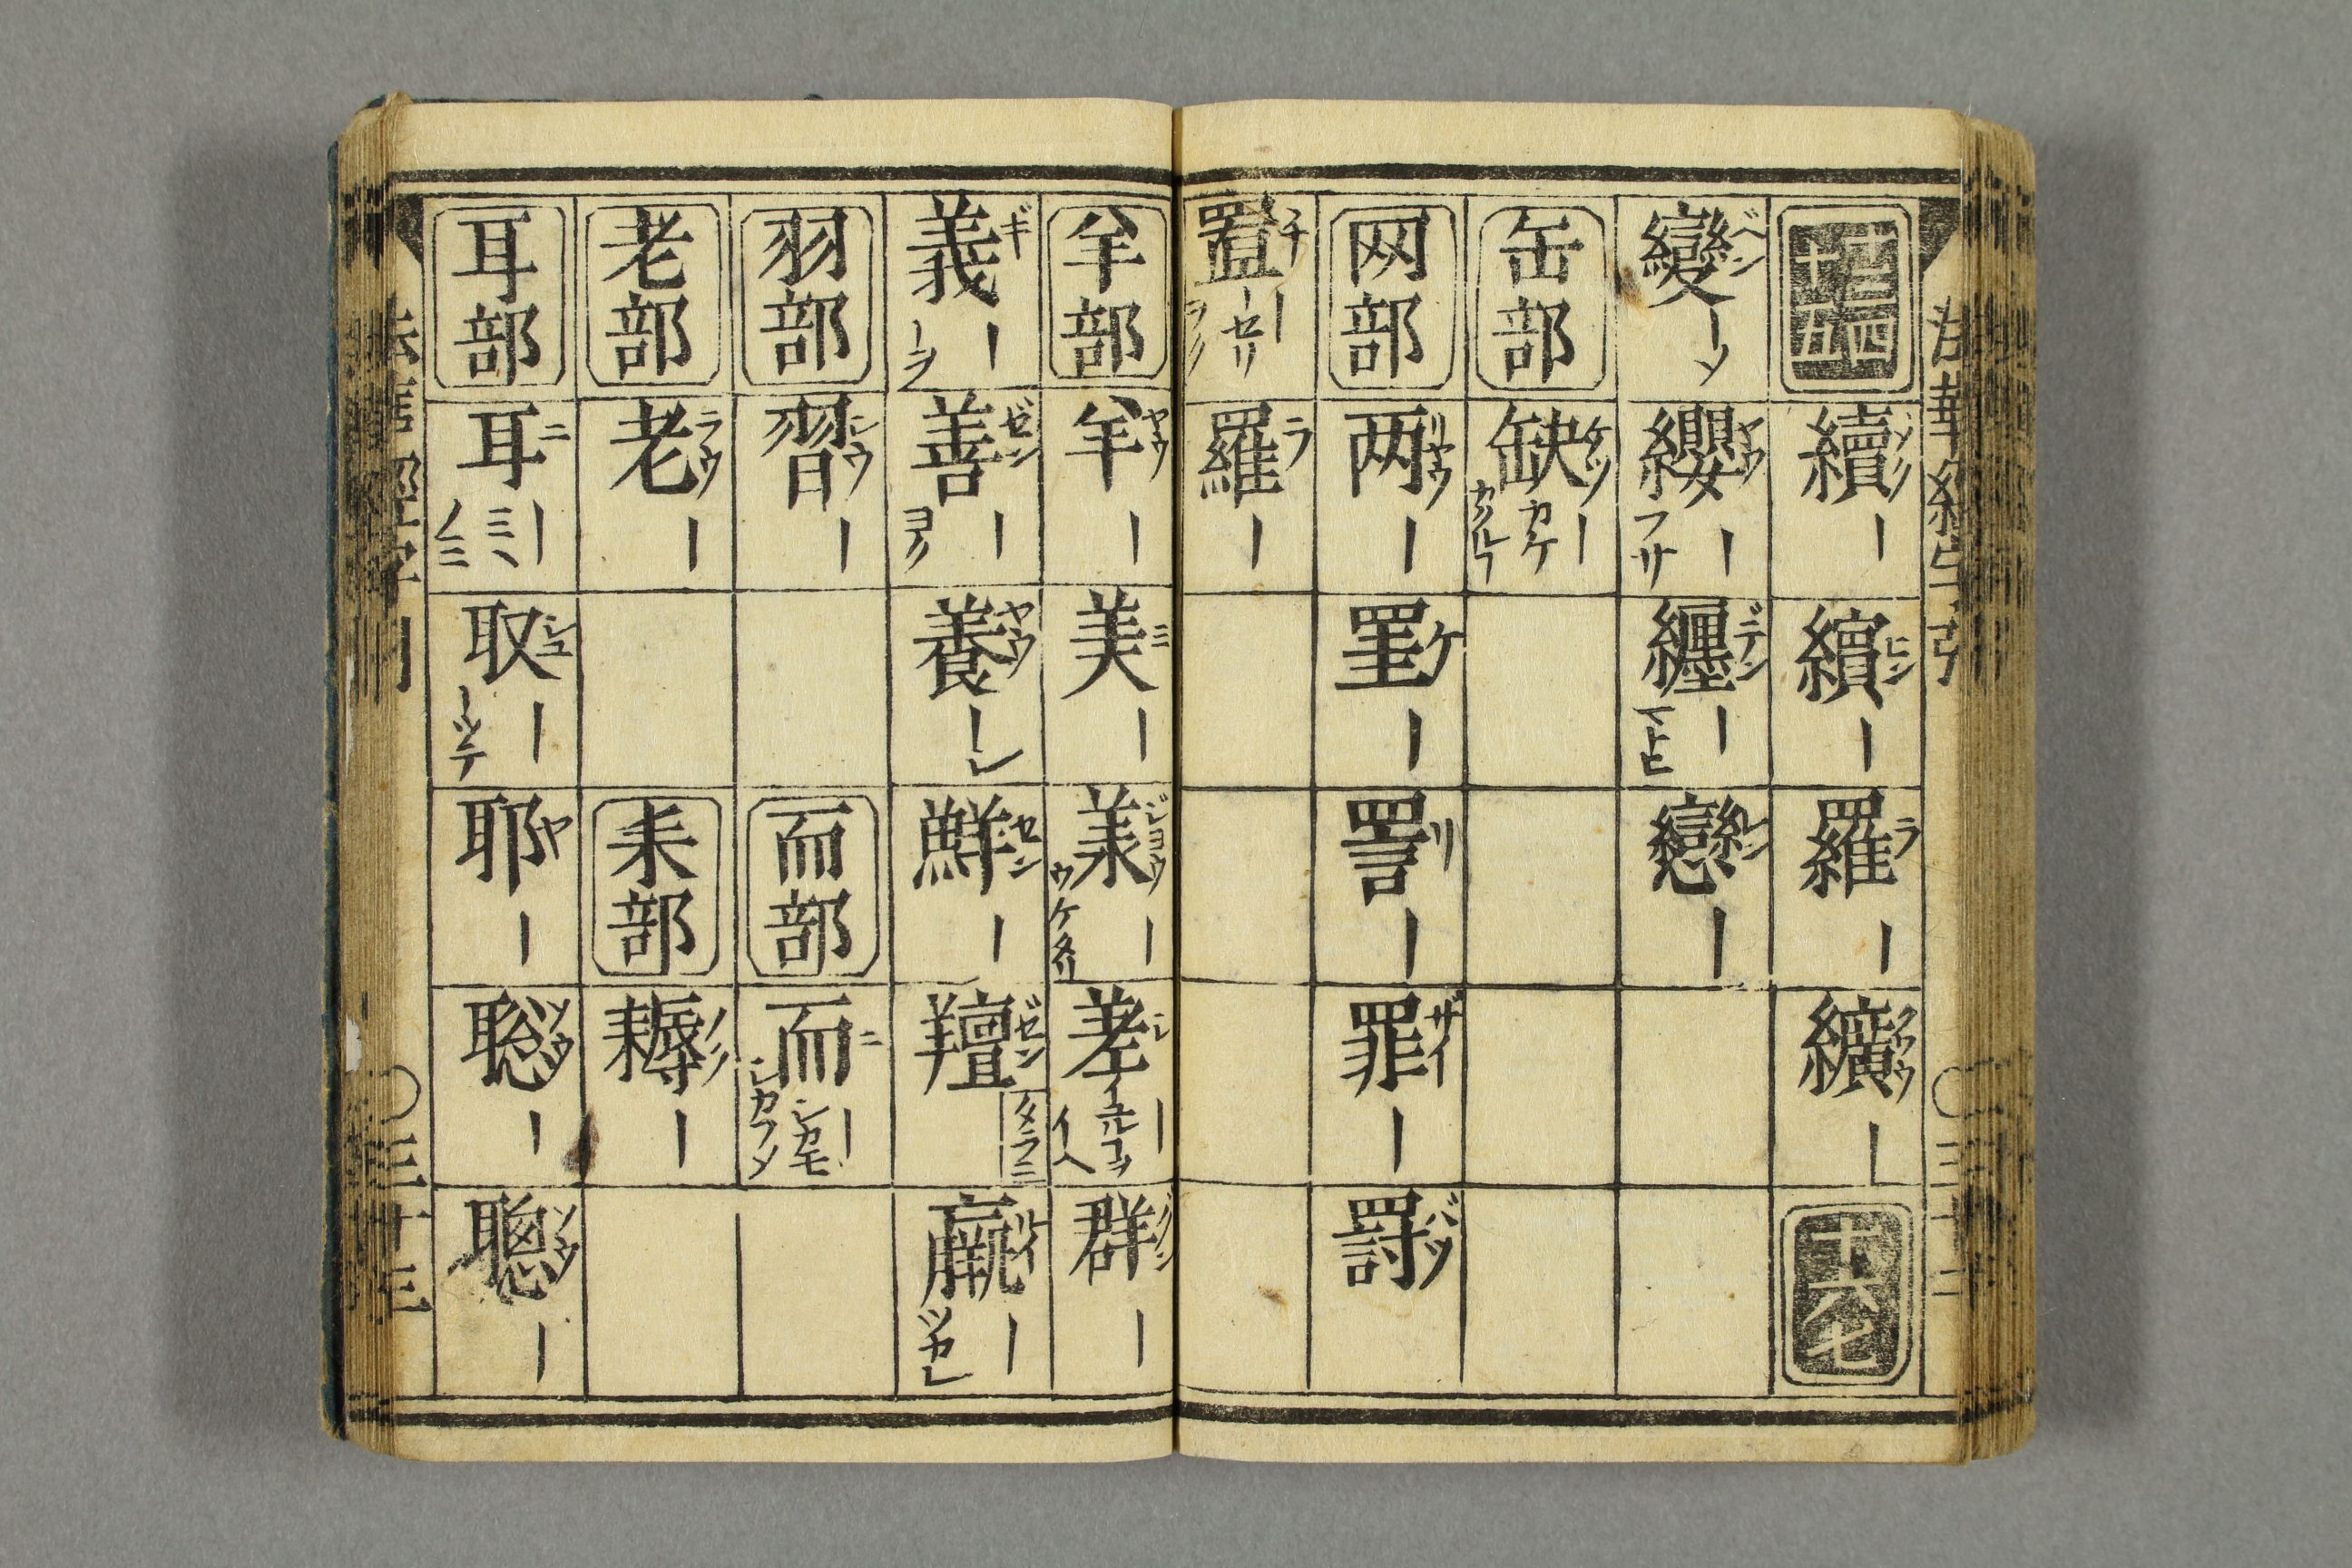 十三 十四 十五
續 ゾク ー
繽 ヒン ー
羅 ラ ー
纊 クワウ ー
十六 七
變 ヘン ー ーソ
纓 ヤウ ー フサ
纒 デン ー マトヒ
戀 レン ー
缶部
缺 ケツ ー カケ カクルヿ
网部
两 リヤウ ー
罣 ケ ー
詈 リ ー
罪 ザイ ー
罸 バツ
置 チ ー ーセリ ヲク
羅 ラ ー
羊部
羊 ヤウ ー
美 ミ ー
羕 ジヨウ ー ウケタリ
差 シ ー イユルコヲ イヘ
群 グン ー
義 ギ ー ーヲ
善 ゼン ー ヨク
養 ヤウ ーレ
鮮 セン ー
羶 ゼン
羸 ルイ ー ツカレ
羽部
習 シウ ー
而部
而 ニ ー シカモ シカフメ
老部
老 ラウ ー
耒部
耨 ノク ー
耳部
耳 ニ ー ミヽ ノミ
取 シユ ー ーツテ
耶 ヤ ー
聡 ソウ ー
聰 ソウ ー
三十三